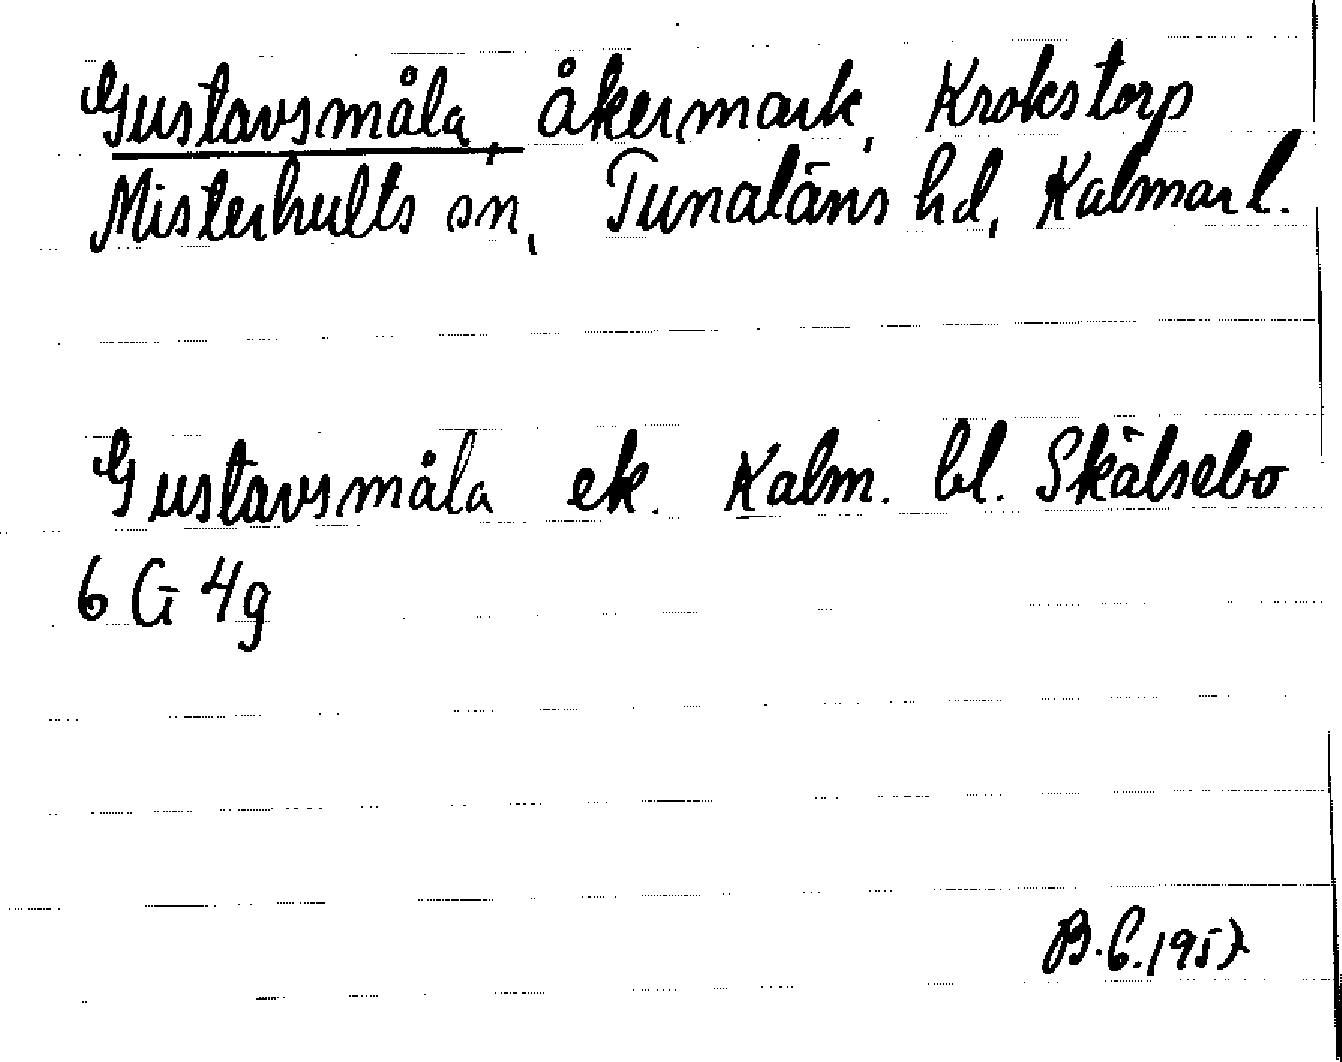 Gustavsmåla, åkermark, Krokstorp
Misterhults sn, Tunaläns hd, Kalmar l.
Gustavsmåla ek. Kalm. bl. Skälsebo
6 G 4g
B.C. 1957